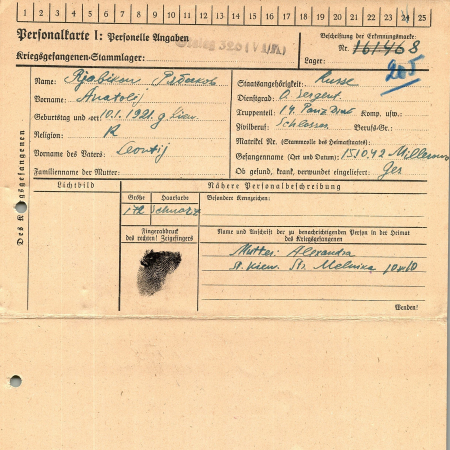 1 2 3 4 5 6 7 8 9 10 11 12 13 14 15 16 17 18 19 20 21 22 23 24 25
Personalkarte I: Personelle Angaben
Kriegsgefangenen-Stammlager: Stalag 326 (VI/K)
Beschriftung der Erkennungsmarke
Nr. 161468
Lager:
205
Des Kriegsgefangenen
Name: Rjabikow
Vorname: Anatolij
Geburtstag und -ort 10.1.1921. g. Kiew
Religion: R
Vorname des Vaters: Leontij
Familienname der Mutter:
Staatsangehörigkeit: Russe
Dienstgrad: O. Sergent
Truppenteil: 14. Panz Div Komp. usw.:
Zivilberuf: Schlosser Berufs-Gr.:
Matrikel Nr. (Stammrolle des Heimatstaates):
Gefangennahme (Ort und Datum): 15.10.42
Ob gesund, krank, verwundet eingeliefert: Ges
Lichtbild
Nähere Personalbeschreibung
Größe Haarfarbe
Schwarz
Besondere Kennzeichen:
Fingerabdruck
des rechten! Zeigefingers
Name und Anschrift der zu benachrichtigenden Person in der Heimat
des Kriegsgefangenen
Mutter: Alexandra
st. Kiew. Str. Melnika
Wenden!